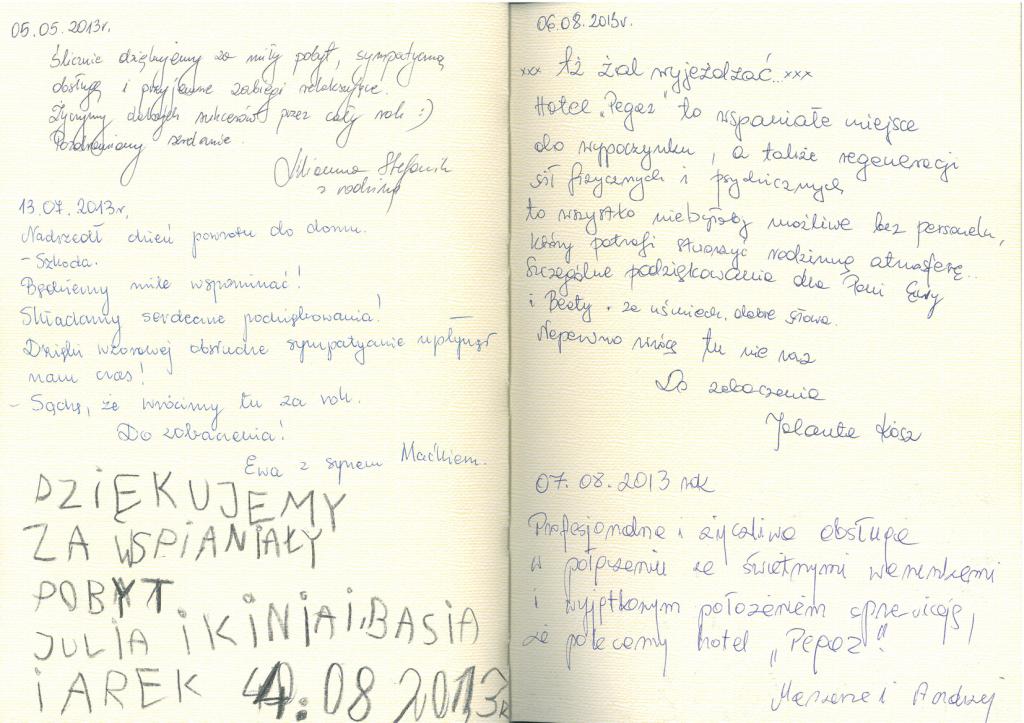 05.05.2013r.
Ślicznie dziękujemy za miły pobyt, sympatyczną
obsługę i przyjemne zabiegi relaksujące.
Życzymy dalszych sukcesów przez cały rok :)
Pozdrawiamy serdecznie.
Stefanik
z rodziną
13.07.2013r.
Nadszedł dzień powrotu do domu.
- Szkoda.
Będziemy mile wspominać!
Składamy serdeczne podziękowania!
Dzięki wzorowej obsłudze sympatycznie upłynął
nam czas!
- Sądzę, że wrócimy tu za rok.
Do zobaczenia!
Ewa z synem Maćkiem.
DZIĘKUJEMY
ZA WSPIANIAŁY
POBYT
JULIA I KINIA I BASIA
I AREK 4.08 2013r
06.08.2013r.
xxx Aż żal wyjeżdżać... xxx
Hotel "Pegaz" to wspaniałe miejsce
do wypoczynku, a także regeneracji
sił fizycznych i psychicznych,
to wszystko niebyłoby możliwe bez personelu,
który potrafi stworzyć rodzinną atmosferę...
Szczególne podziękowania dla Pani
i Beaty. za uśmiech, dobre słowa.
Napewno wrócę tu nie raz
Do zobaczenia
Jolanta
07.08.2013 rok
Profesjonalna i życzliwa obsługa
w połączeniu ze świetnymi warunkami
i wyjątkowym położeniem sprawiają,
że polecamy hotel "Pegaz"!
i Andrzej